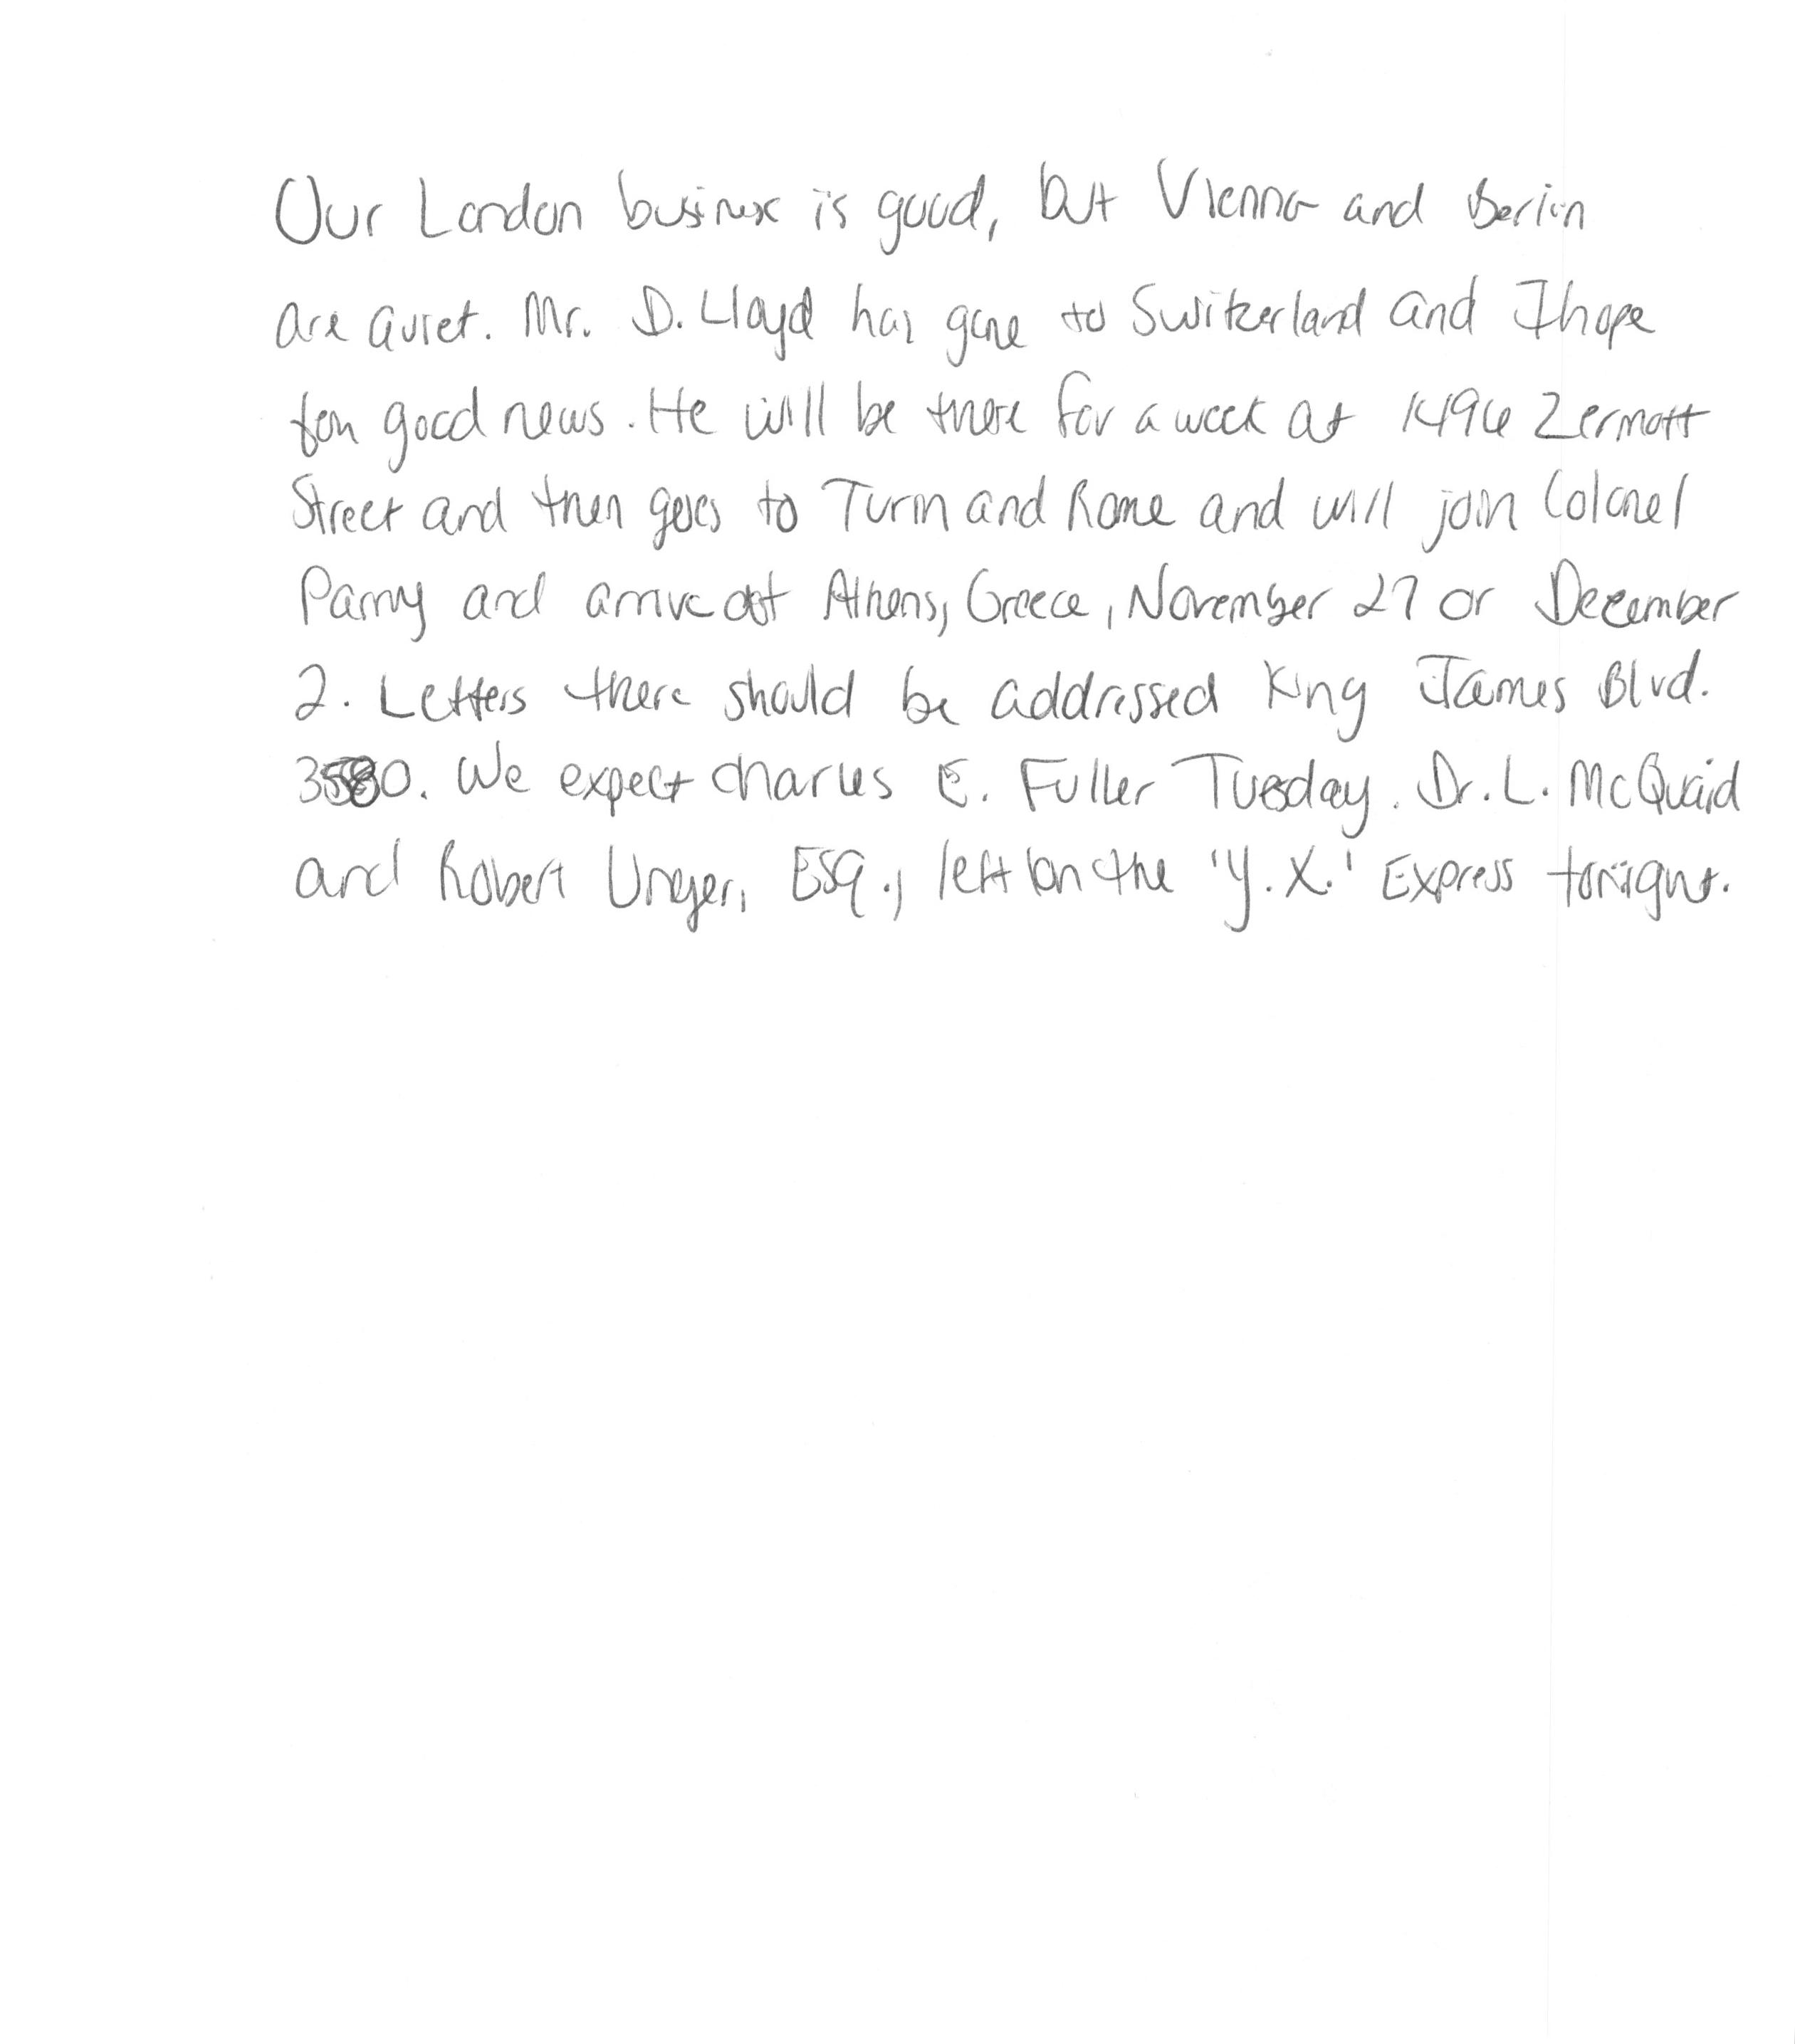 Our London business is good, but Vienna and Berlin
are quiet. Mr. D. Lloyd has gone to Switzerland and I hope
for good news. He will be there for a week at 1496 Zermott
Street and then goes to Turin and Rome and will join Colonel
Parry and arrive at Athens, Greece, November 27 or December
2. Letters there should be addressed King James Blvd.
3580. We expect Charles E. Fuller Tuesday. Dr. L. McQuaid
and Robert Unger, Esq., left on the 'Y.X.' Express tonight.